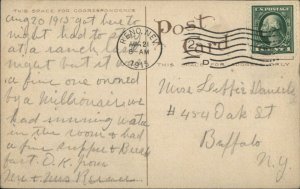 THIS SPACE FOR CORRESPONDENCE
Aug 20 1915 got here to
night had to
at a ranch last
night but it
a fine one owned
by a Millionaire we
had running water
in the room & had
a fine supper & Break
fast. O.K. from
Mr & Mrs
RENO, NEV.
AUG 21
8-AM
1915
Post
Card
THIS SPACE FOR ONLY
Miss
# 454 Oak St
Buffalo
N.Y.